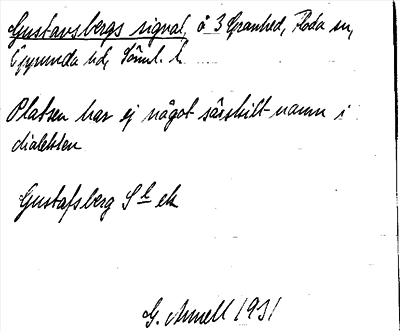 Gustavsbergs signal, å 3 Granhed, Floda sn,
Oppunda hd, Söml. l.
Platsen har ej något särskilt namn i
dialekten
Gustafsberg S k ek
G. Amell 1931